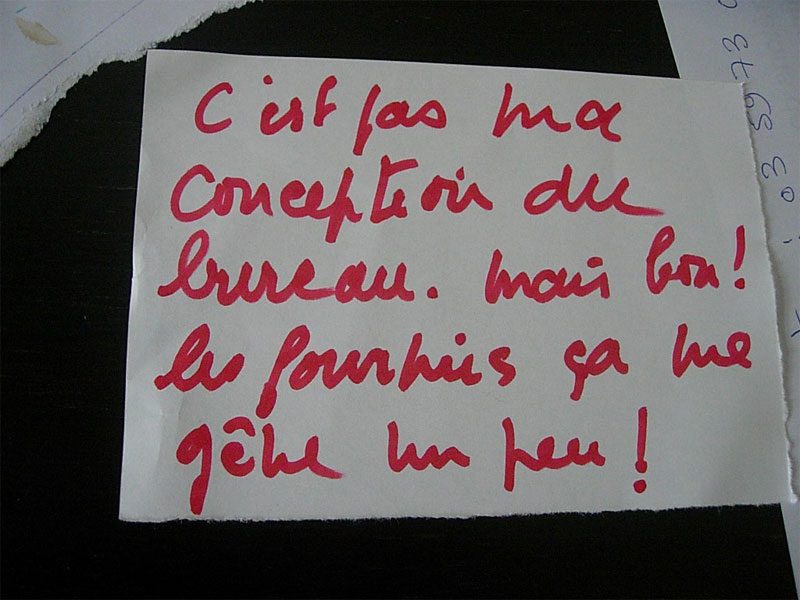 C'est pas ma
conception du
bureau. mais bon!
les fourmis ça me
gêne un peu!
03 59 73